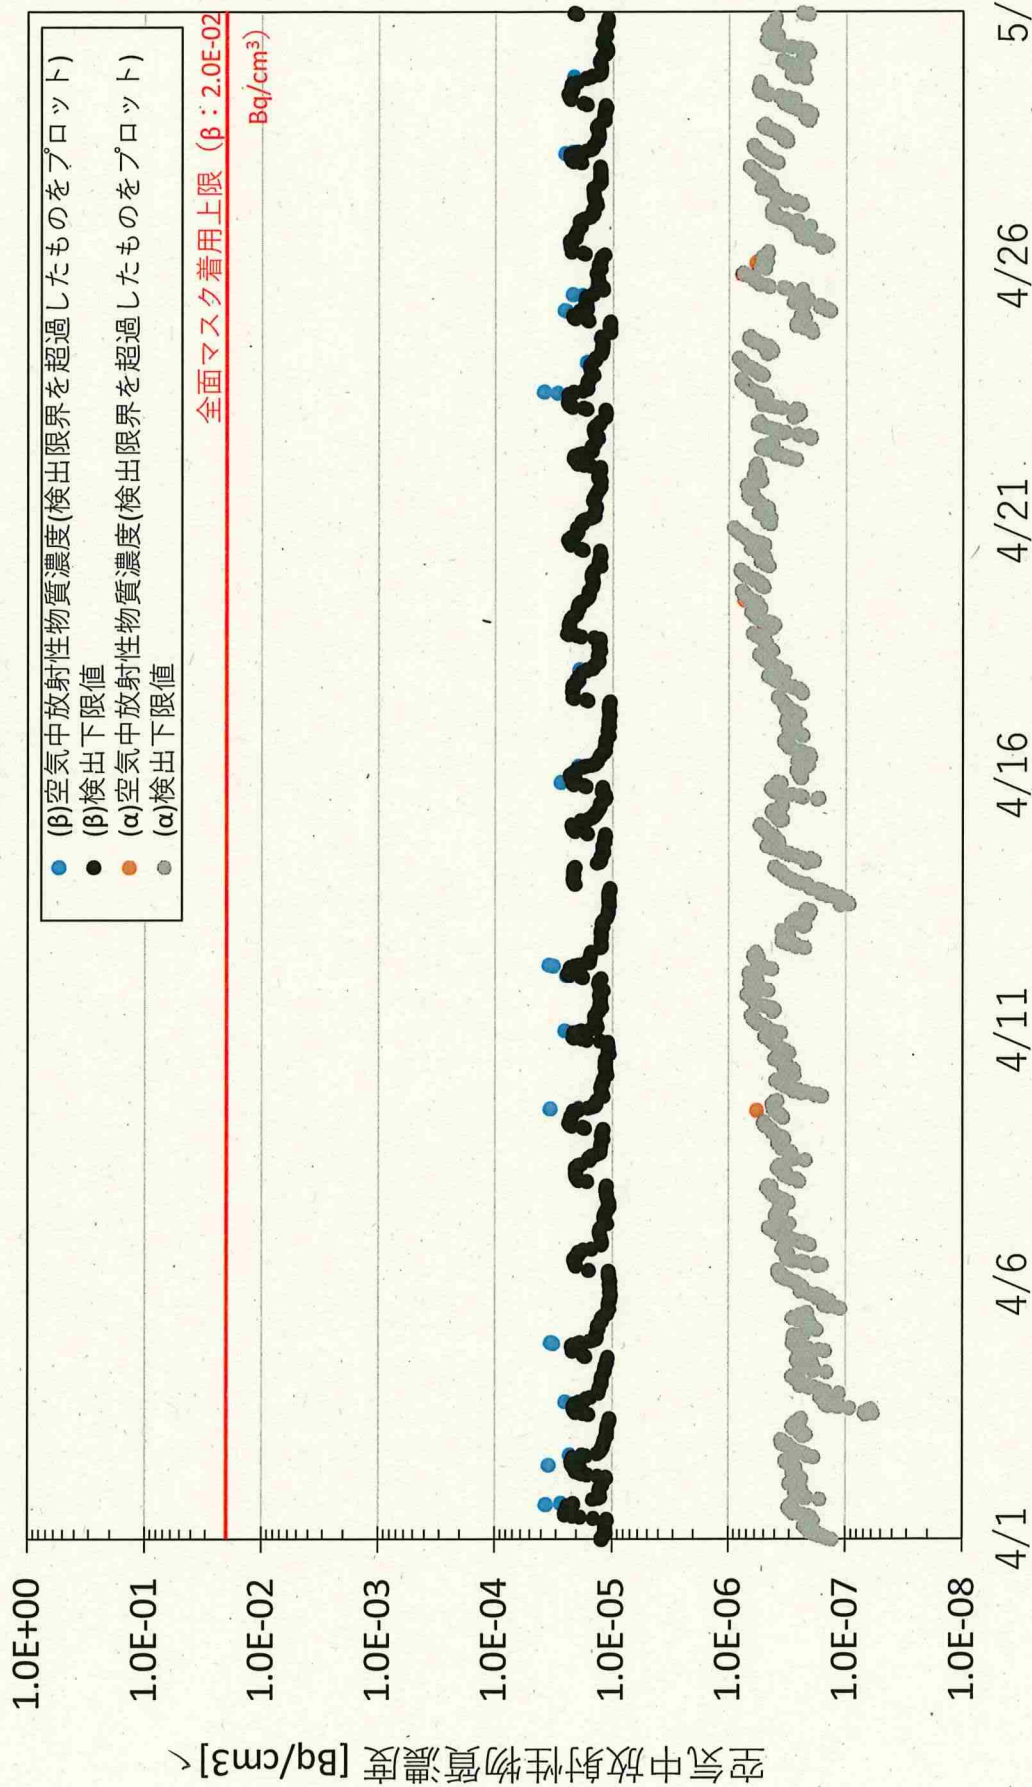 (β)空気中放射性物質濃度(検出限界を超過したものをプロット)
(β)検出下限値
(α)空気中放射性物質濃度(検出限界を超過したものをプロット)
(α)検出下限値
全面マスク着用上限(β:2.0E-02
Bq/cm³)
1.0E+00
1.0E-01
1.0E-02
1.0E-03
1.0E-04
1.0E-05
1.0E-06
1.0E-07
1.0E-08
空気中放射性物質濃度 [Bq/cm3]
4/1
4/6
4/11
4/16
4/21
4/26
5/